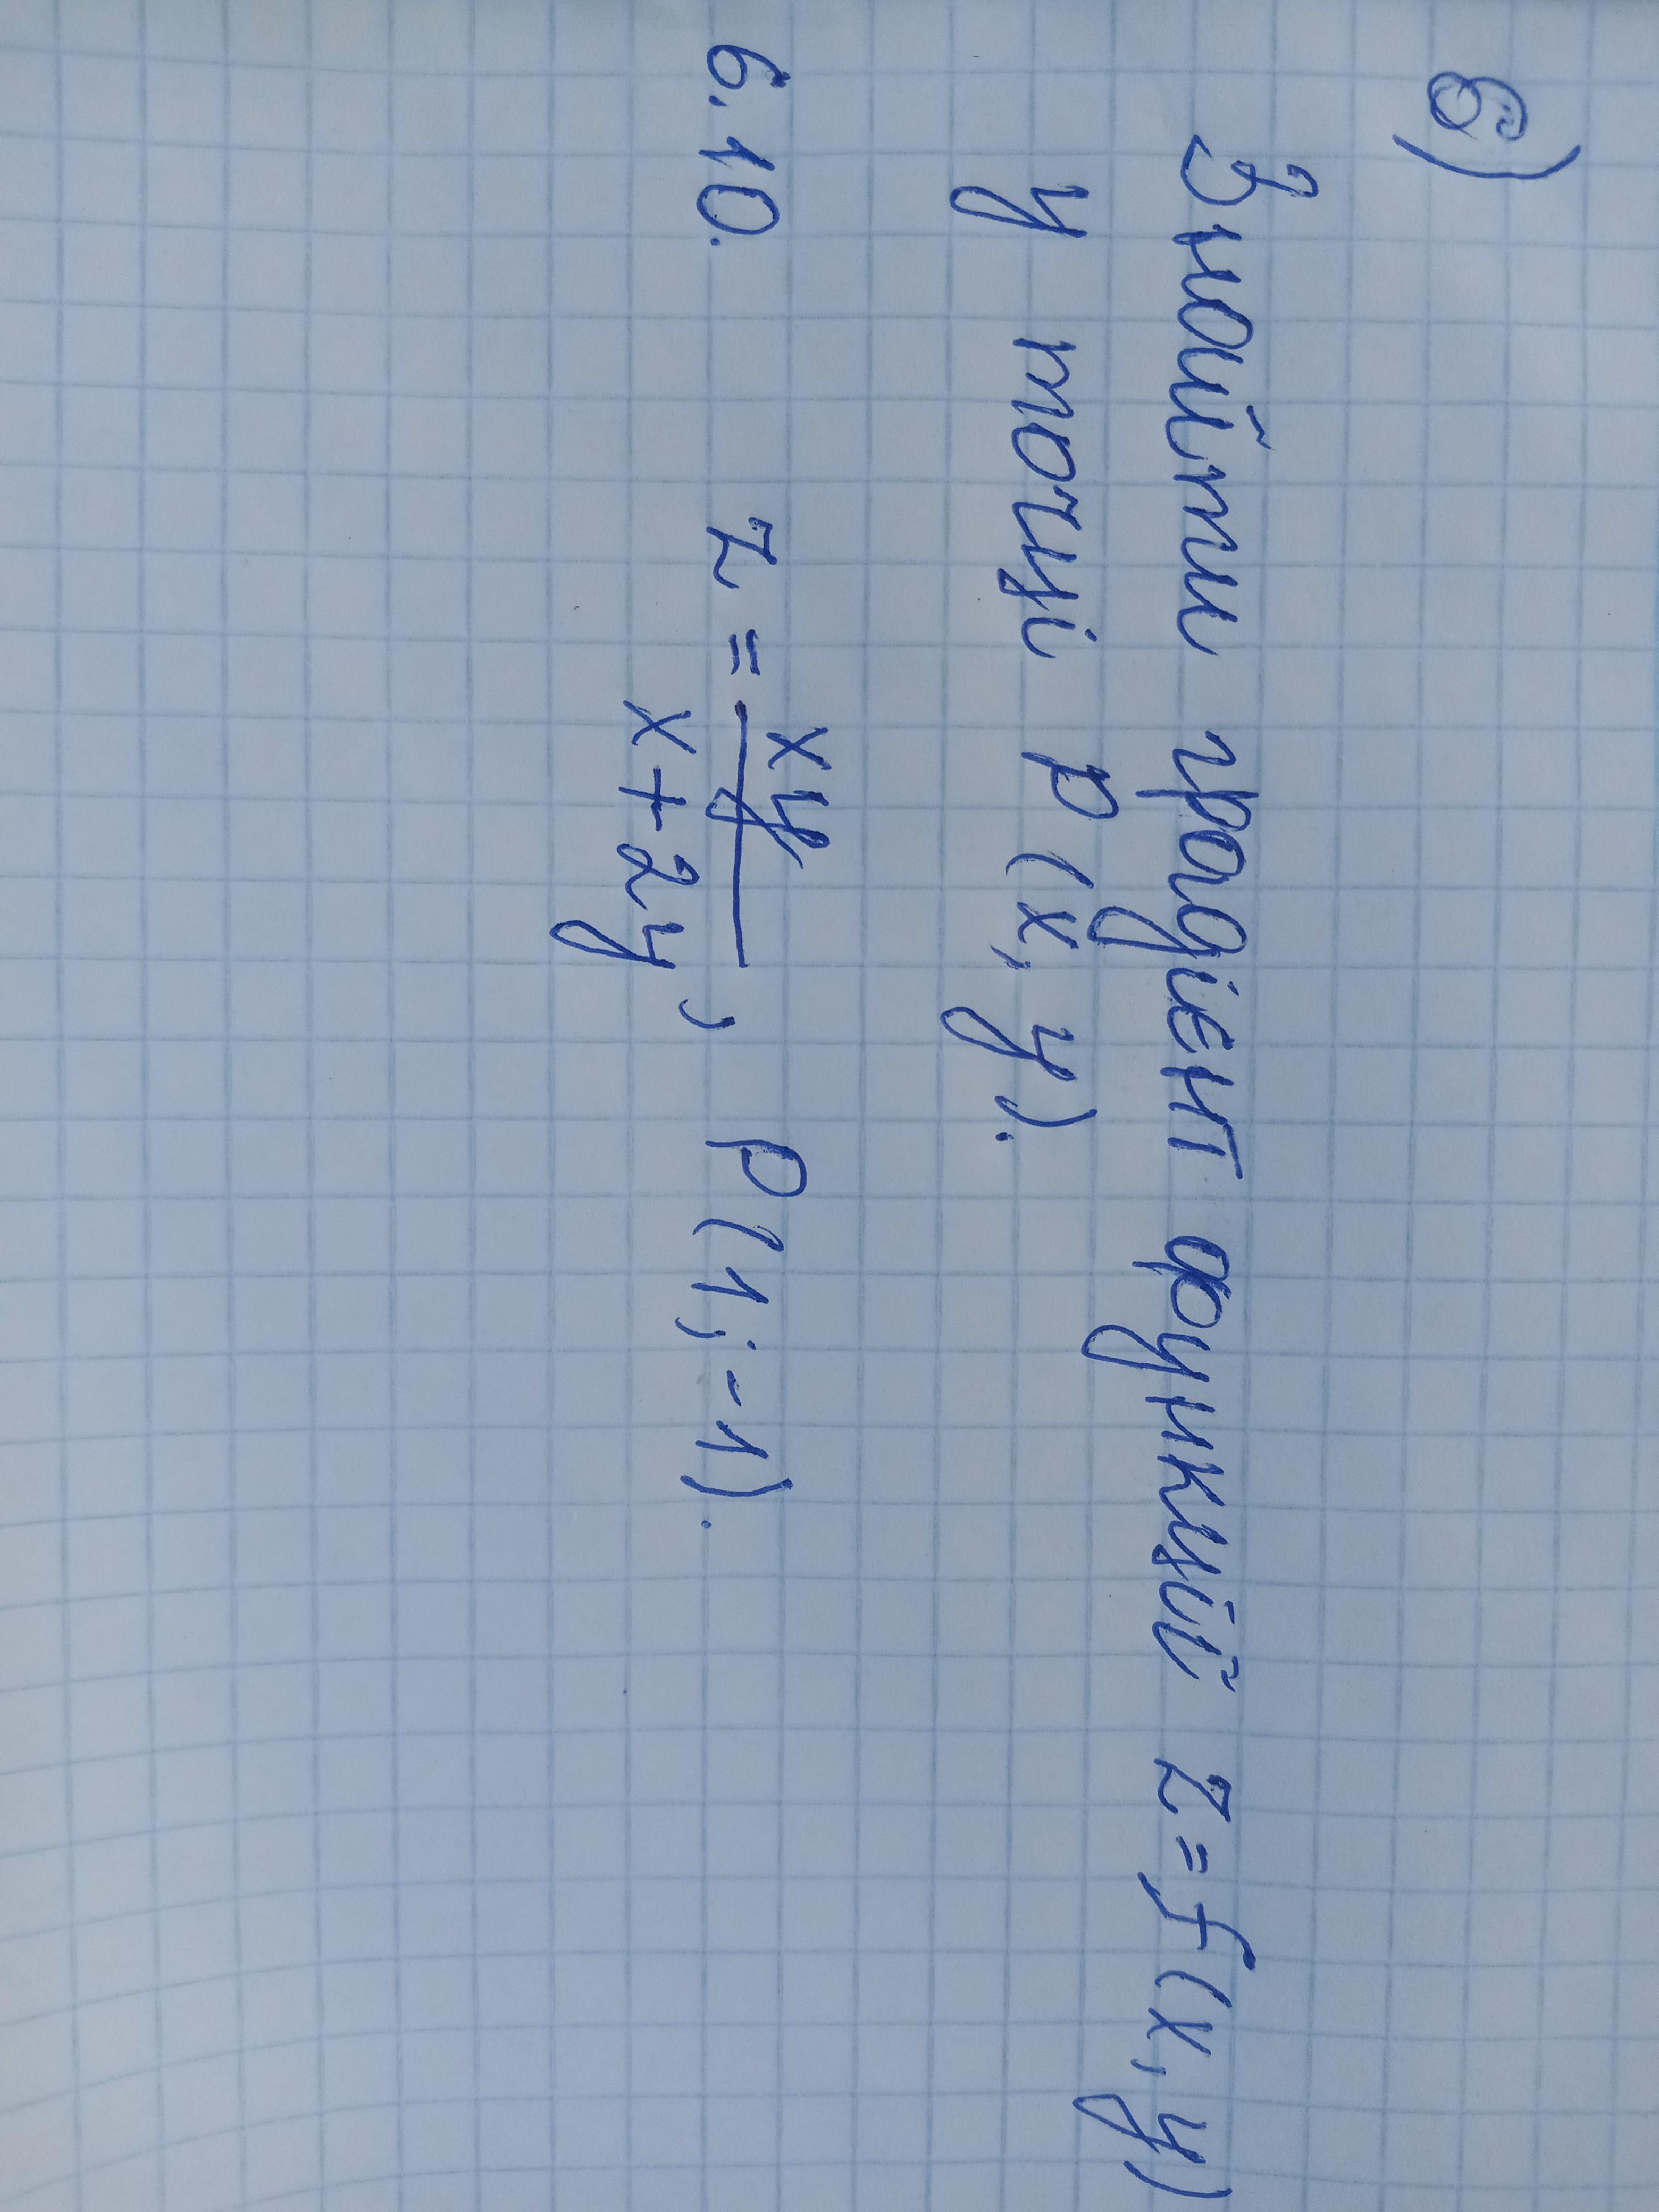 6)
Знайти градієнт функції z=f(x,y)
у точці P(x,y).
6.10. z = xy/(x+2y), P(1;-1).